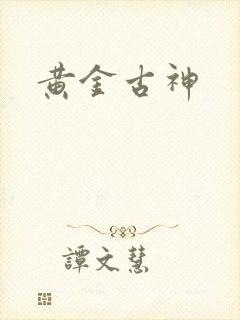 黃金古神
譚文慧